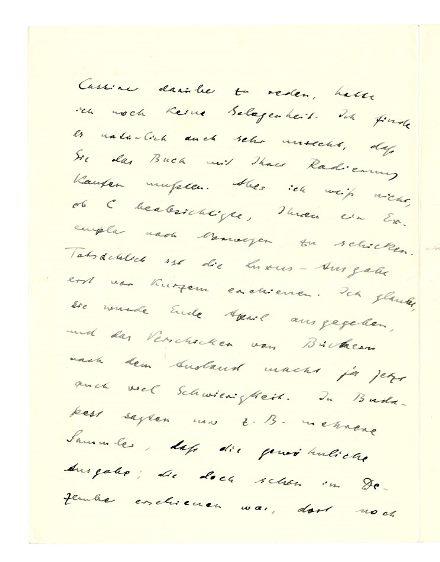 Cassirer darüber zu reden, hatte
ich noch keine Gelegenheit. Ich finde
es natürlich auch sehr unrecht, daß
Sie das Buch mit Ihrer Radierung
kaufen mußten. Aber ich weiß nicht,
ob C beabsichtigte, Ihnen ein Ex-
emplar nach Norwegen zu schicken.
Tatsächlich ist die Luxus-Ausgabe
erst vor Kurzem erschienen. Ich glaube,
sie wurde Ende April ausgegeben,
und das Verschicken von Büchern
nach dem Ausland macht ja jetzt
auch viel Schwierigkeit. In Buda-
pest sagten mir z. B. mehrere
Sammler, daß die gewöhnliche
Ausgabe, die doch schon im De-
zember erschienen war, dort noch